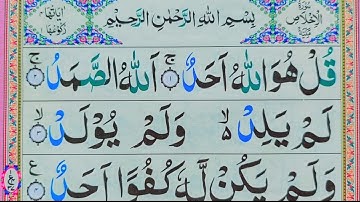 سُورَةُ الْإِخْلَاصِ
بِسْمِ اللّٰهِ الرَّحْمٰنِ الرَّحِيْمِ
قُلْ هُوَ اللّٰهُ اَحَدٌ ۚ﴿۱﴾ اَللّٰهُ الصَّمَدُ ۚ﴿۲﴾
لَمْ يَلِدْ ۙ۬ وَلَمْ يُوْلَدْ ۙ﴿۳﴾
وَلَمْ يَكُنْ لَّهٗ كُفُوًا اَحَدٌ ﴿۴﴾